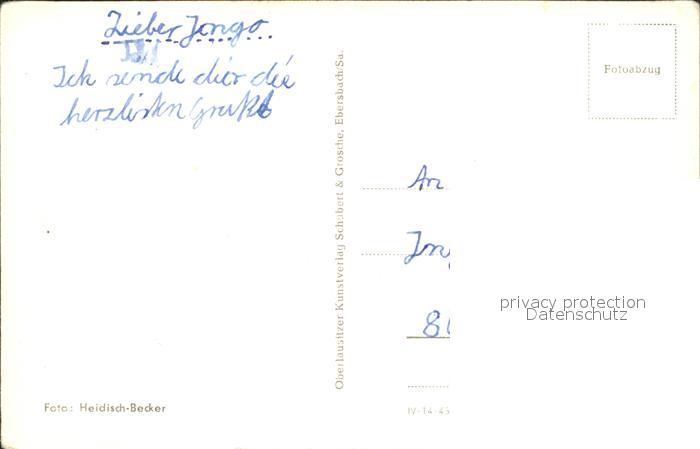 Lieber Jongo
Ick sende dier die
herzlisten Grüße
Oberlausitzer Kunstverlag Schubert & Grosche, Ebersbach/Sa.
Fotoabzug
An
privacy protection
Datenschutz
Foto: Heidisch-Becker
IV-14-45